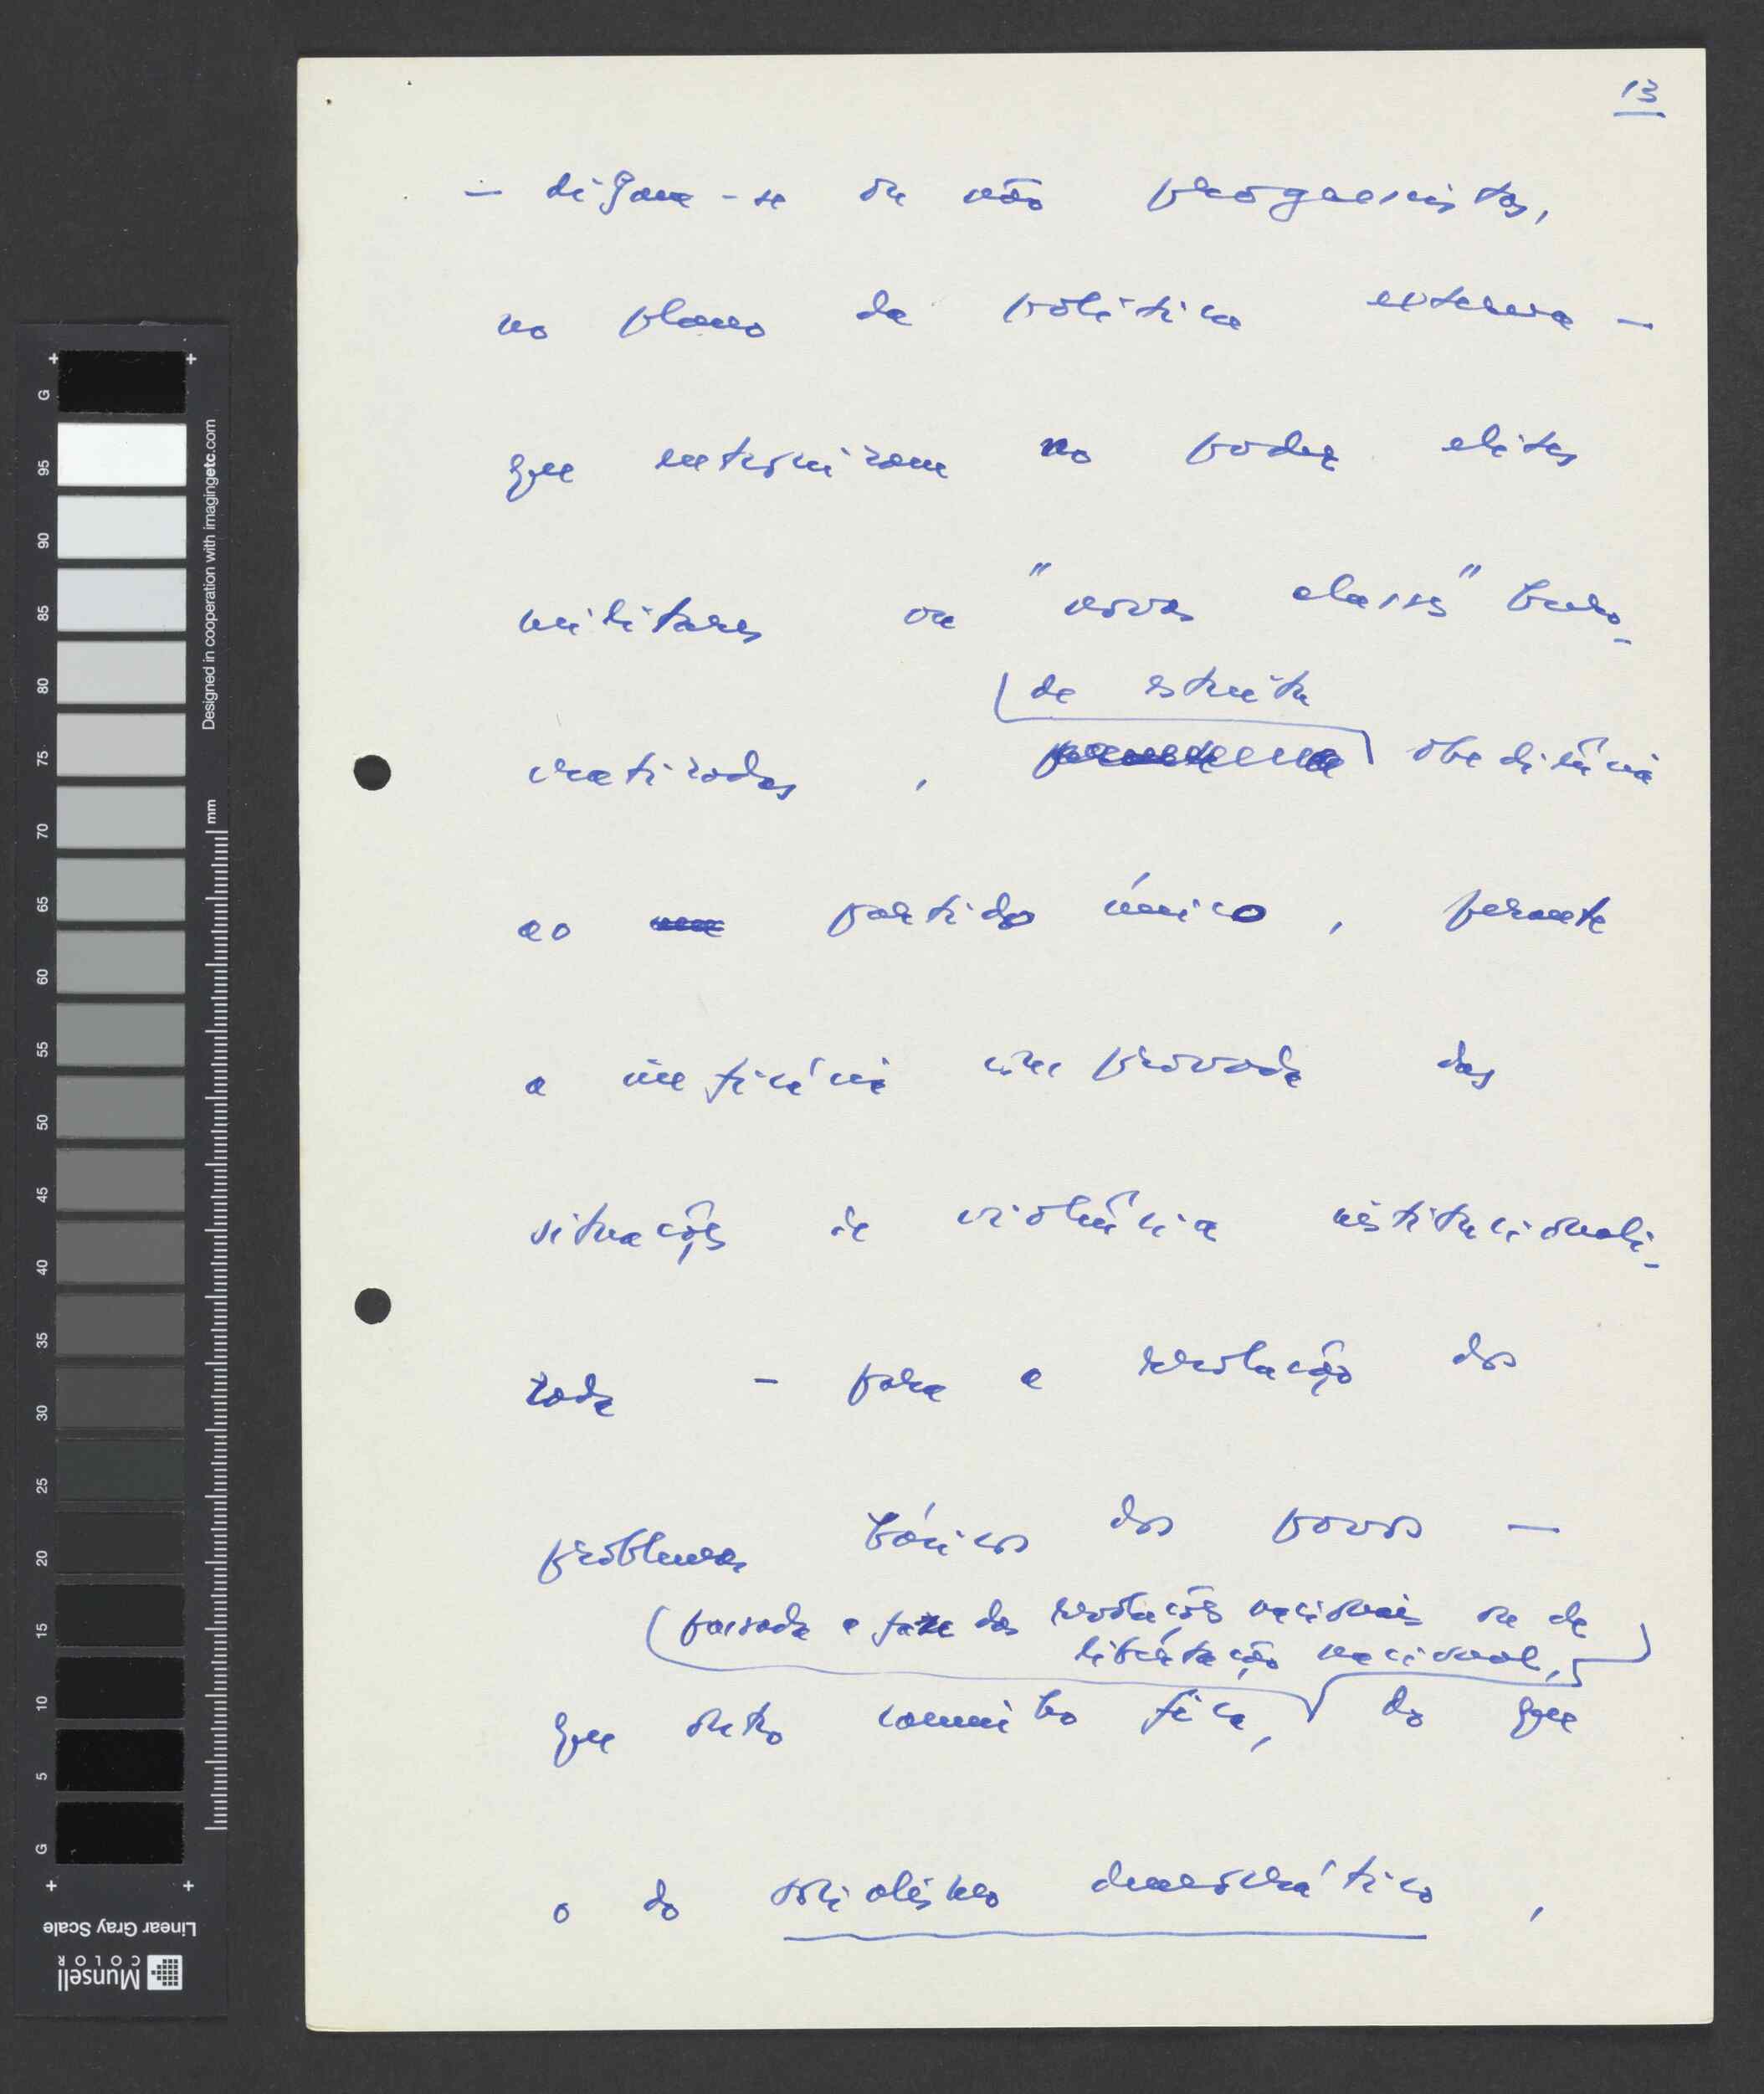 13
– digam-se ou não progressistas,
no plano da política externa –
que entronizam no poder elites
militares ou "novas classes" buro-
de estrita
cratizadas, obediência
ao um partido único, perante
a ineficácia comprovada das
situações de violência institucionali-
zada – para a resolução dos
problemas básicos dos povos –
passada a fase das revoluções nacionais ou de
libertação nacional,
que outro caminho fica, do que
o do socialismo democrático,
G
95
90
85
80
75
70
65
60
55
50
45
40
35
30
25
20
15
10
5
G
Designed in cooperation with imagingetc.com
mm
Linear Gray Scale
Munsell
COLOR